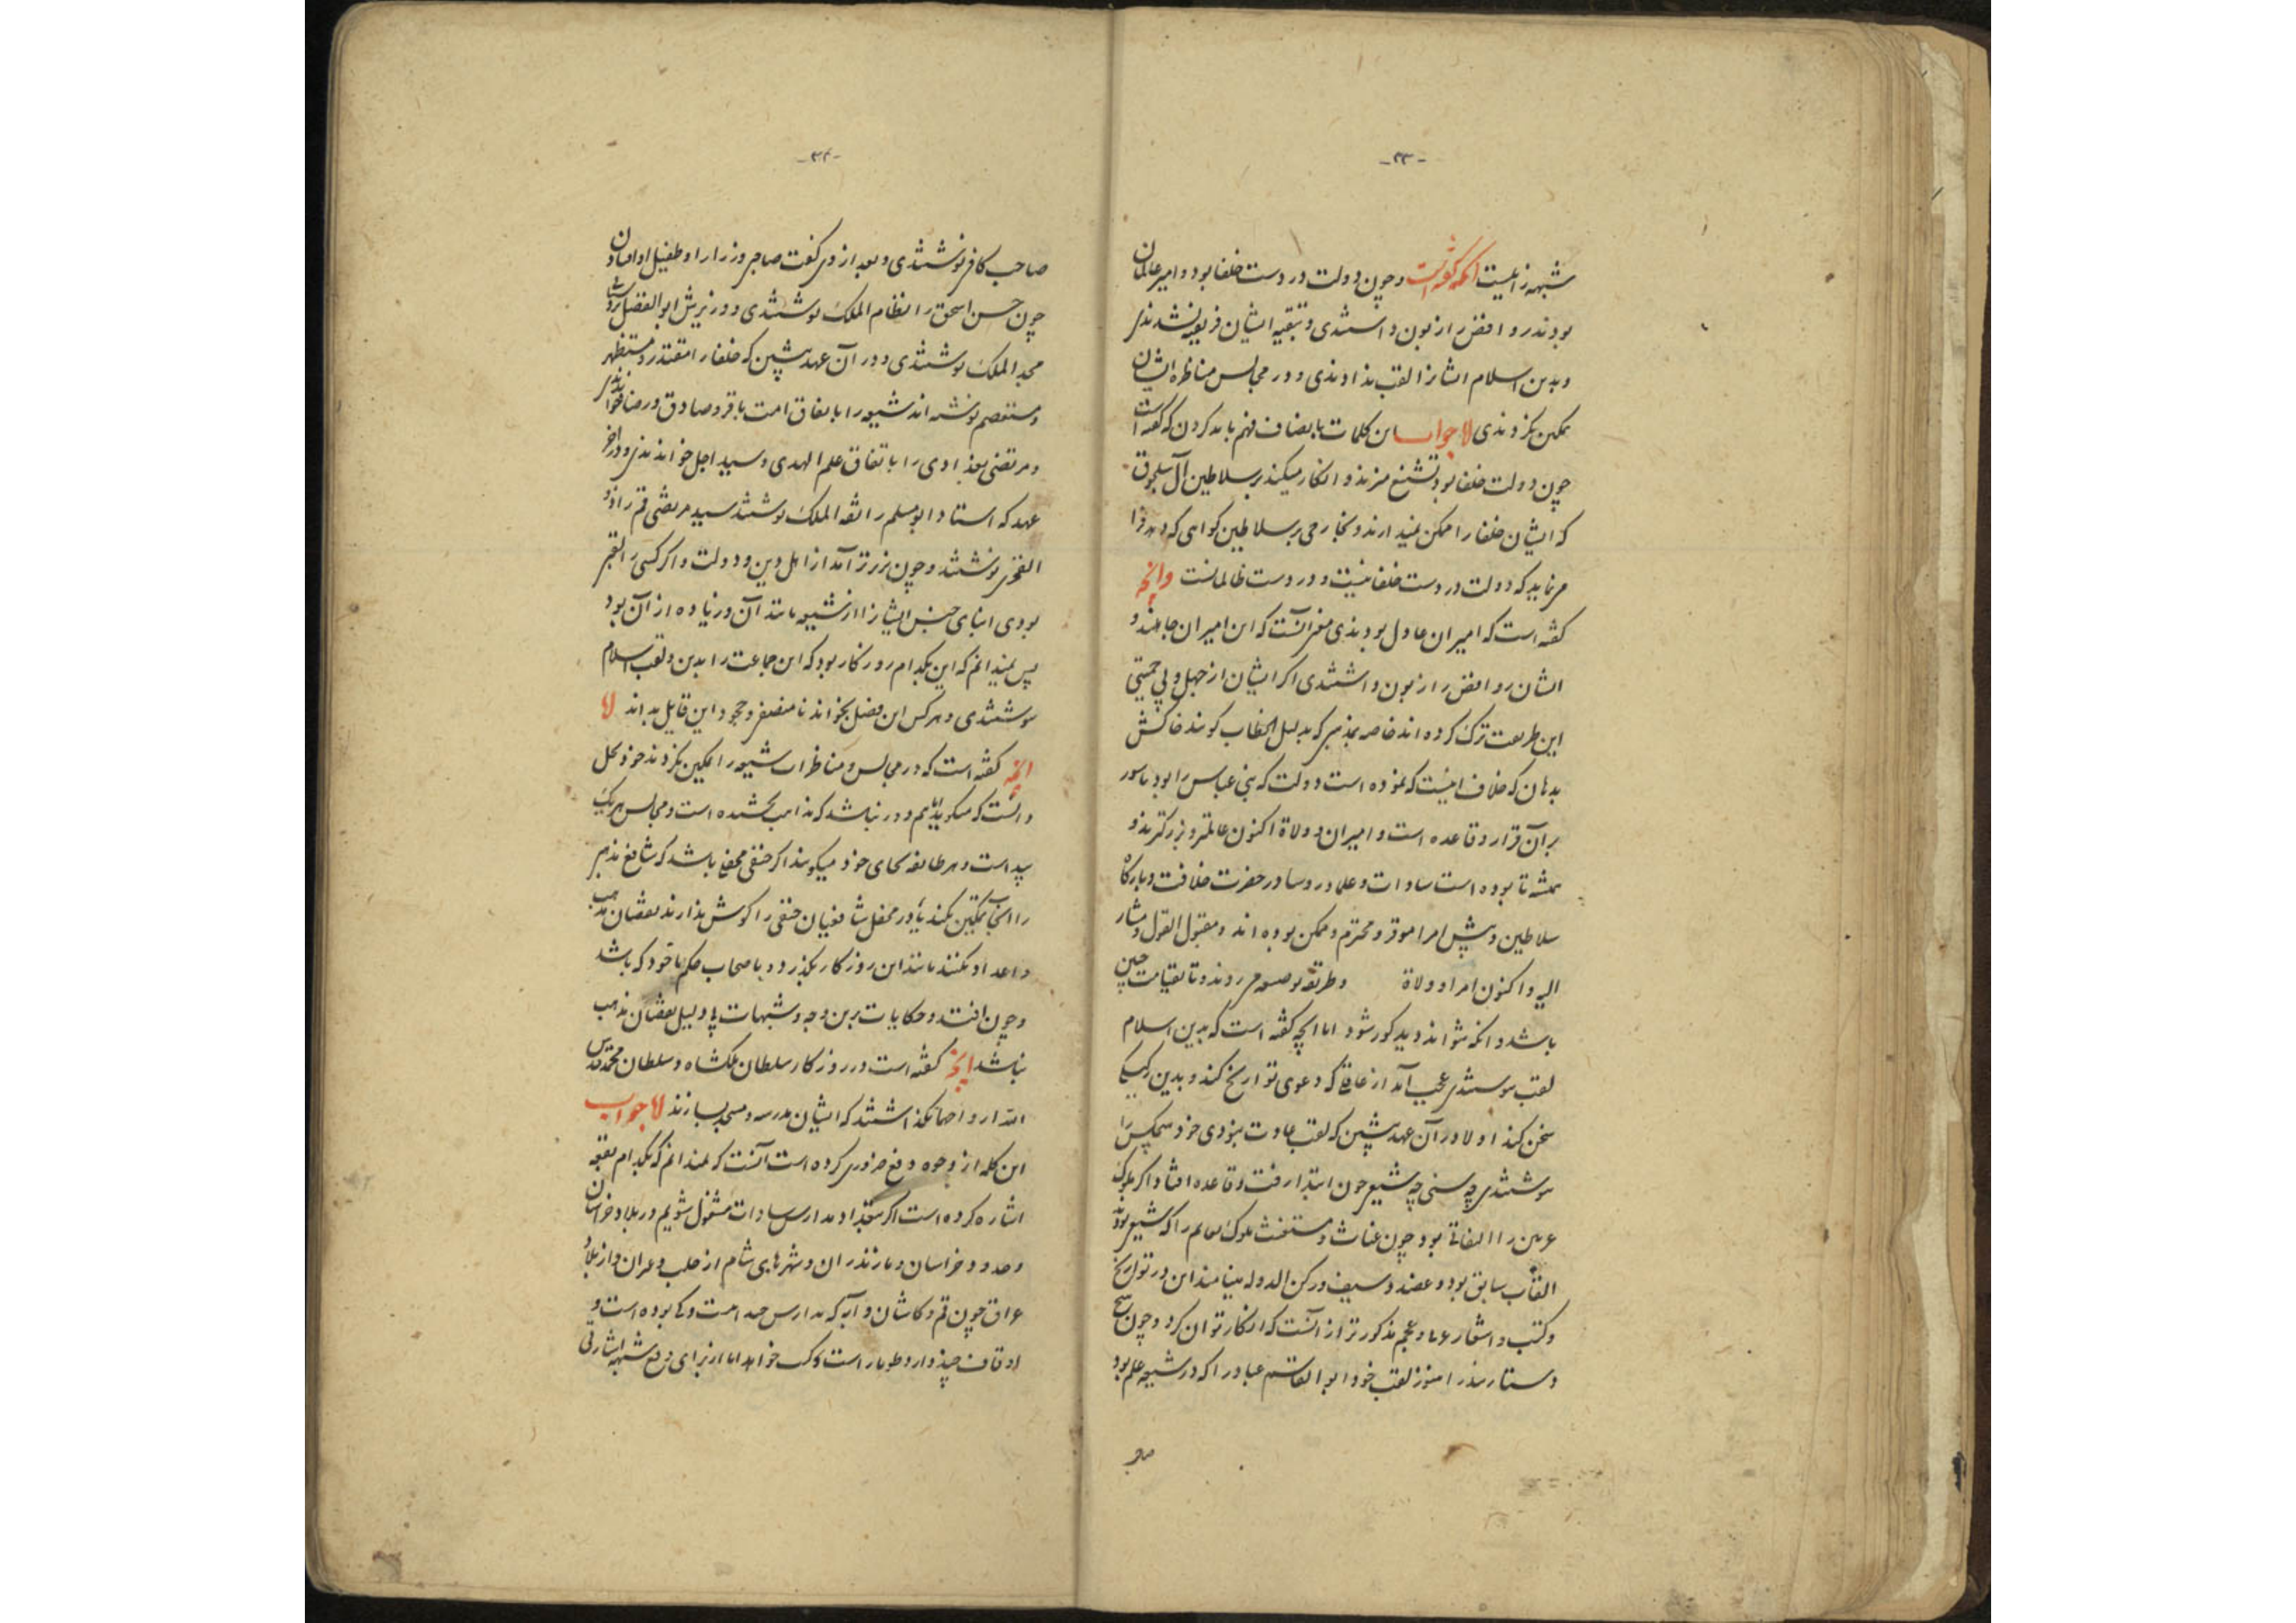 -۳۳-
شبهه زا نیست آنکه گفته است و چون دولت در دست خلفا بود و امیر عالمان
بودند روافض را زبون داشتندی و بتقیه ایشان فریفته نشدندی
و بدین اسلام ایشانرا لقب ندادندی و در مجالس مناظره ایشان
تمکین نکردندی اما جواب این کلمات بانصاف فهم باید کردن که گفته است
چون دولت خلفا بود تشنیع میزند و انکار میکند بر سلاطین آل سلجوق
که ایشان خلفا را ممکن نمیدارند و بخارجی بر سلاطین گواهی که دهد و را
مینماید که دولت در دست خلفا نیست و در دست ظالمانست و آنچه
گفته است که امیران عادل بودندی معنی آنست که این امیران جاهلند و
ایشان روافض را زبون داشتندی اگر ایشان از جهل و بی حمیتی
این طریقت ترک کرده اند خاصه بمذهبی که بدلیل الخطاب گویند خاکش
بدهان که خلاف اینست که نموده است و دولت که بنی عباس را بود مامور
بر آن قرار و قاعده است و امیران و ولاة اکنون عالمتر و بزرگترند و
همیشه تا بوده است سادات و علما و رؤسا در حضرت خلافت و بارگاه
سلاطین و پیش امرا موقر و محترم و ممکن بوده اند و مقبول القول و مشار
الیه و اکنون امرا و ولاة و طریقه میروند و تا بقیامت چنین
باشد و آنکه نتواند دید کور شود اما آنچه گفته است که بدین اسلام
لقب ننوشتندی عجب آمد از عاقلی که دعوی تواریخ کند و بدین رکیکی
سخن کند اولا در آن عهد پیشین که لقب عادت نبودی خود هیچکس را
ننوشتندی چه سنی چه شیعی چون ابتدا رفت و قاعده افتاد اگر ملوک
را القابی بود چون غیاث و مستغیث ملوک عالم را که شیعی بودند
القاب سابق بود و عضد و سیف و رکن الدوله مینامند این در تواریخ
و کتب و اشعار عرب و عجم مذکورتر از آنست که انکار توان کرد و چون
دستار هنوز لقب خود ابو القاسم عباد را که در شیعه علم بود
صاحب
-۳۴-
صاحب کافی نوشتندی و بعد از وی گفت صاحبی وزرا را و طفیل او افتادن
چون حسن اسحق را نظام الملک نوشتندی و وزیریش ابو الفضل
مجد الملک نوشتندی و در آن عهد پیشین که خلفا را مقتدر و مستظهر
و مستعصم نوشته اند شیعه را باتفاق امت باقر و صادق و رضا خواندندی
و مرتضی بغدادی را باتفاق علم الهدی و سید اجل خواندندی و در آخر
عهد که استاد ابو مسلم را ثقه الملک نوشتند سید مرتضی قم را ذو
الفخرین نوشتند و چون فروتر آمد از اهل دین و دولت و اگر کسی را لقبی
بودی ابنای جنس ایشانرا از شیعه مانند آن و زیاده از آن بود
پس نمیدانم که این بکدام روزگار بود که این جماعت را بدین و لقب اسلام
ننوشتندی و هر کس این فصل بخواند نامنصفی و جحود این قایل بداند اما
آنچه گفته است که در مجالس و مناظرات شیعه را تمکین نکردند خود محال
دانست که میگوید و دور نباشد که مذاهب مختلفه است و مجالس هر یک
پیداست و هر طایفه بجای خود میگویند اگر حنفی محفلی باشد که شافعی مذهبی
را آنجا تمکین نکند یا در محفل شافعیان حنفی را گوش ندارند نقصان مذهب
و اعداد نکنند مانند این روزگار بگذرد و با صحاب حکم با خود که باشد
و چون افتد و حکایات برین وجه و شبهات بی دلیل نقصان مذهب
نباشد آنچه گفته است در روزگار سلطان ملکشاه و سلطان محمد قدس
الله ارواحهما نگذاشتند که ایشان مدرسه و مسجد بسازند اما جواب
این کلمه از وجوه دفع ضروری کرده است آنست که نمیدانم که بکدام بقعه
اشاره کرده است اگر بتعداد مدارس سادات مشغول شویم در بلاد خراسان
و حدود خراسان و مازندران و شهرهای شام از حلب و حران و از بلاد
عراق چون قم و کاشان و آبه که مدارس چند است و کی بوده است و
اوقاف چند دارد طومارات کتب خواهد اما از برای دفع شبهه اشارتی